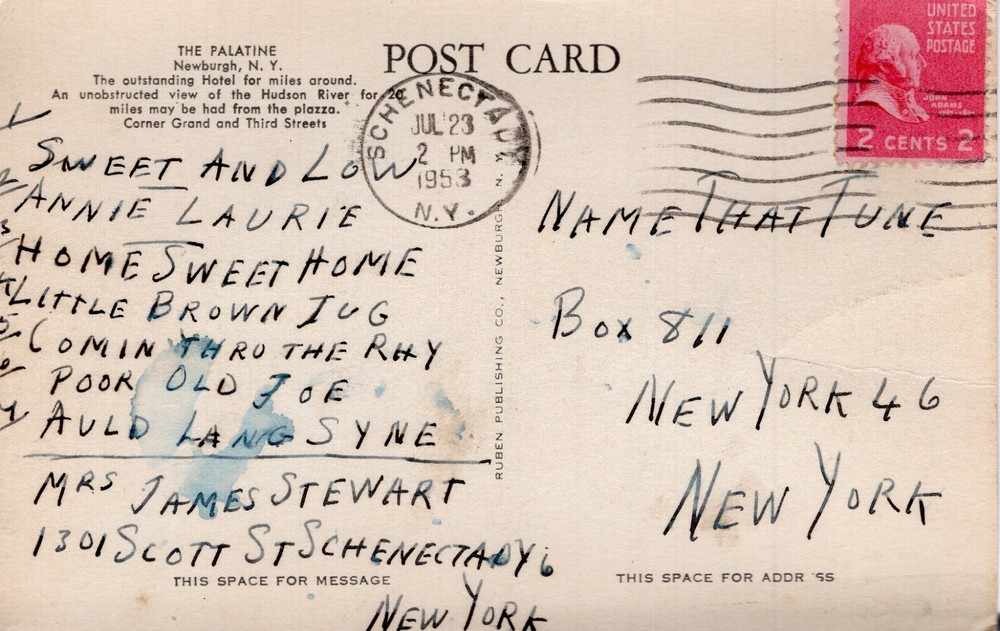 THE PALATINE
Newburgh, N. Y.
The outstanding Hotel for miles around.
An unobstructed view of the Hudson River for 20
miles may be had from the piazza.
Corner Grand and Third Streets
POST CARD
SCHENECTADY
JUL 23
2 PM
1953
N.Y.
UNITED
STATES
POSTAGE
JOHN
ADAMS
2 CENTS 2
1/ SWEET AND LOW
2/ ANNIE LAURIE
3/ HOME SWEET HOME
4/ LITTLE BROWN JUG
5/ COMIN THRO THE RHY
6/ POOR OLD JOE
7/ AULD LANG SYNE
MRS JAMES STEWART
1301 SCOTT ST SCHENECTADY 6
NEW YORK
THIS SPACE FOR MESSAGE
RUBEN PUBLISHING CO., NEWBURGH, N. Y.
NAME THAT TUNE
BOX 811
NEW YORK 46
NEW YORK
THIS SPACE FOR ADDR 'SS